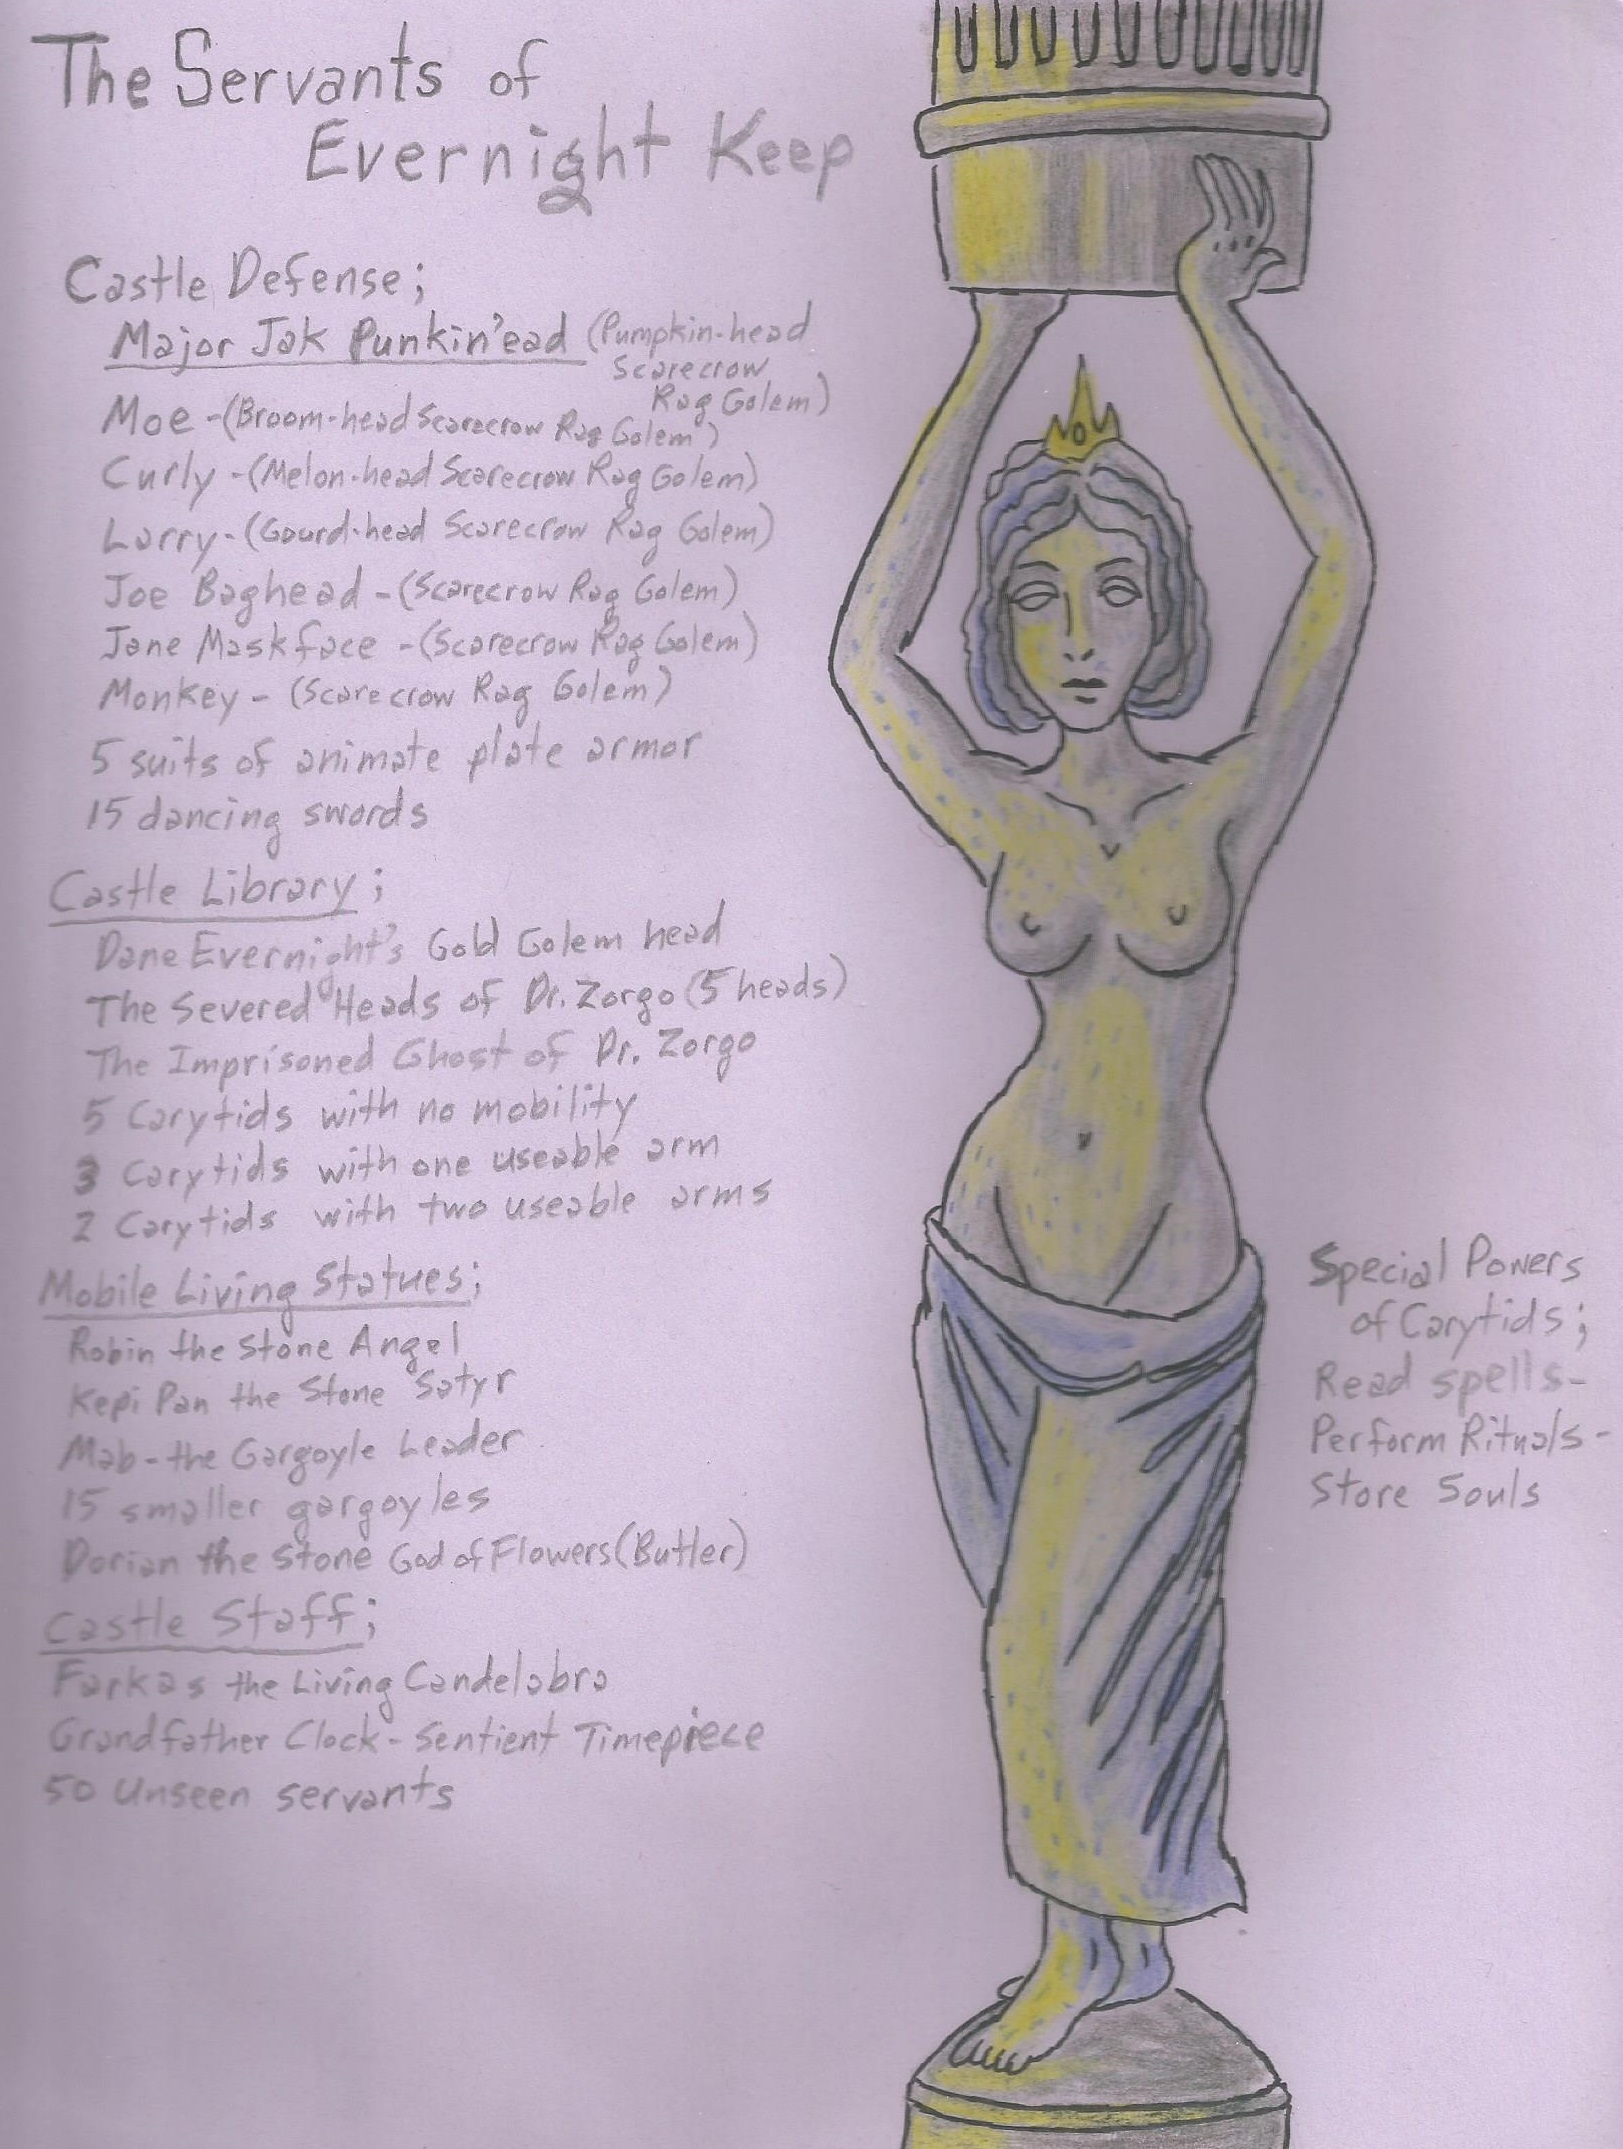 The Servants of
Evernight Keep
Castle Defense;
Major Jak Punkin'ead (Pumpkin-head
Scarecrow
Rag Golem)
Moe -(Broom-head Scarecrow Rag Golem)
Curly -(Melon-head Scarecrow Rag Golem)
Larry-(Gourd-head Scarecrow Rag Golem)
Joe Baghead -(Scarecrow Rag Golem)
Jane Maskface -(Scarecrow Rag Golem)
Monkey - (Scarecrow Rag Golem)
5 suits of animate plate armor
15 dancing swords
Castle Library;
Dane Evernight's Gold Golem head
The Severed Heads of Dr. Zorgo (5 heads)
The Imprisoned Ghost of Dr. Zorgo
5 Carytids with no mobility
3 Carytids with one useable arm
2 Carytids with two useable arms
Mobile Living Statues;
Robin the Stone Angel
Kepi Pan the Stone Satyr
Mab-the Gargoyle Leader
15 smaller gargoyles
Dorian the Stone God of Flowers (Butler)
Castle Staff;
Farkas the Living Candelabra
Grandfather Clock- Sentient Timepiece
50 Unseen servants
Special Powers
of Carytids;
Read spells-
Perform Rituals-
Store Souls